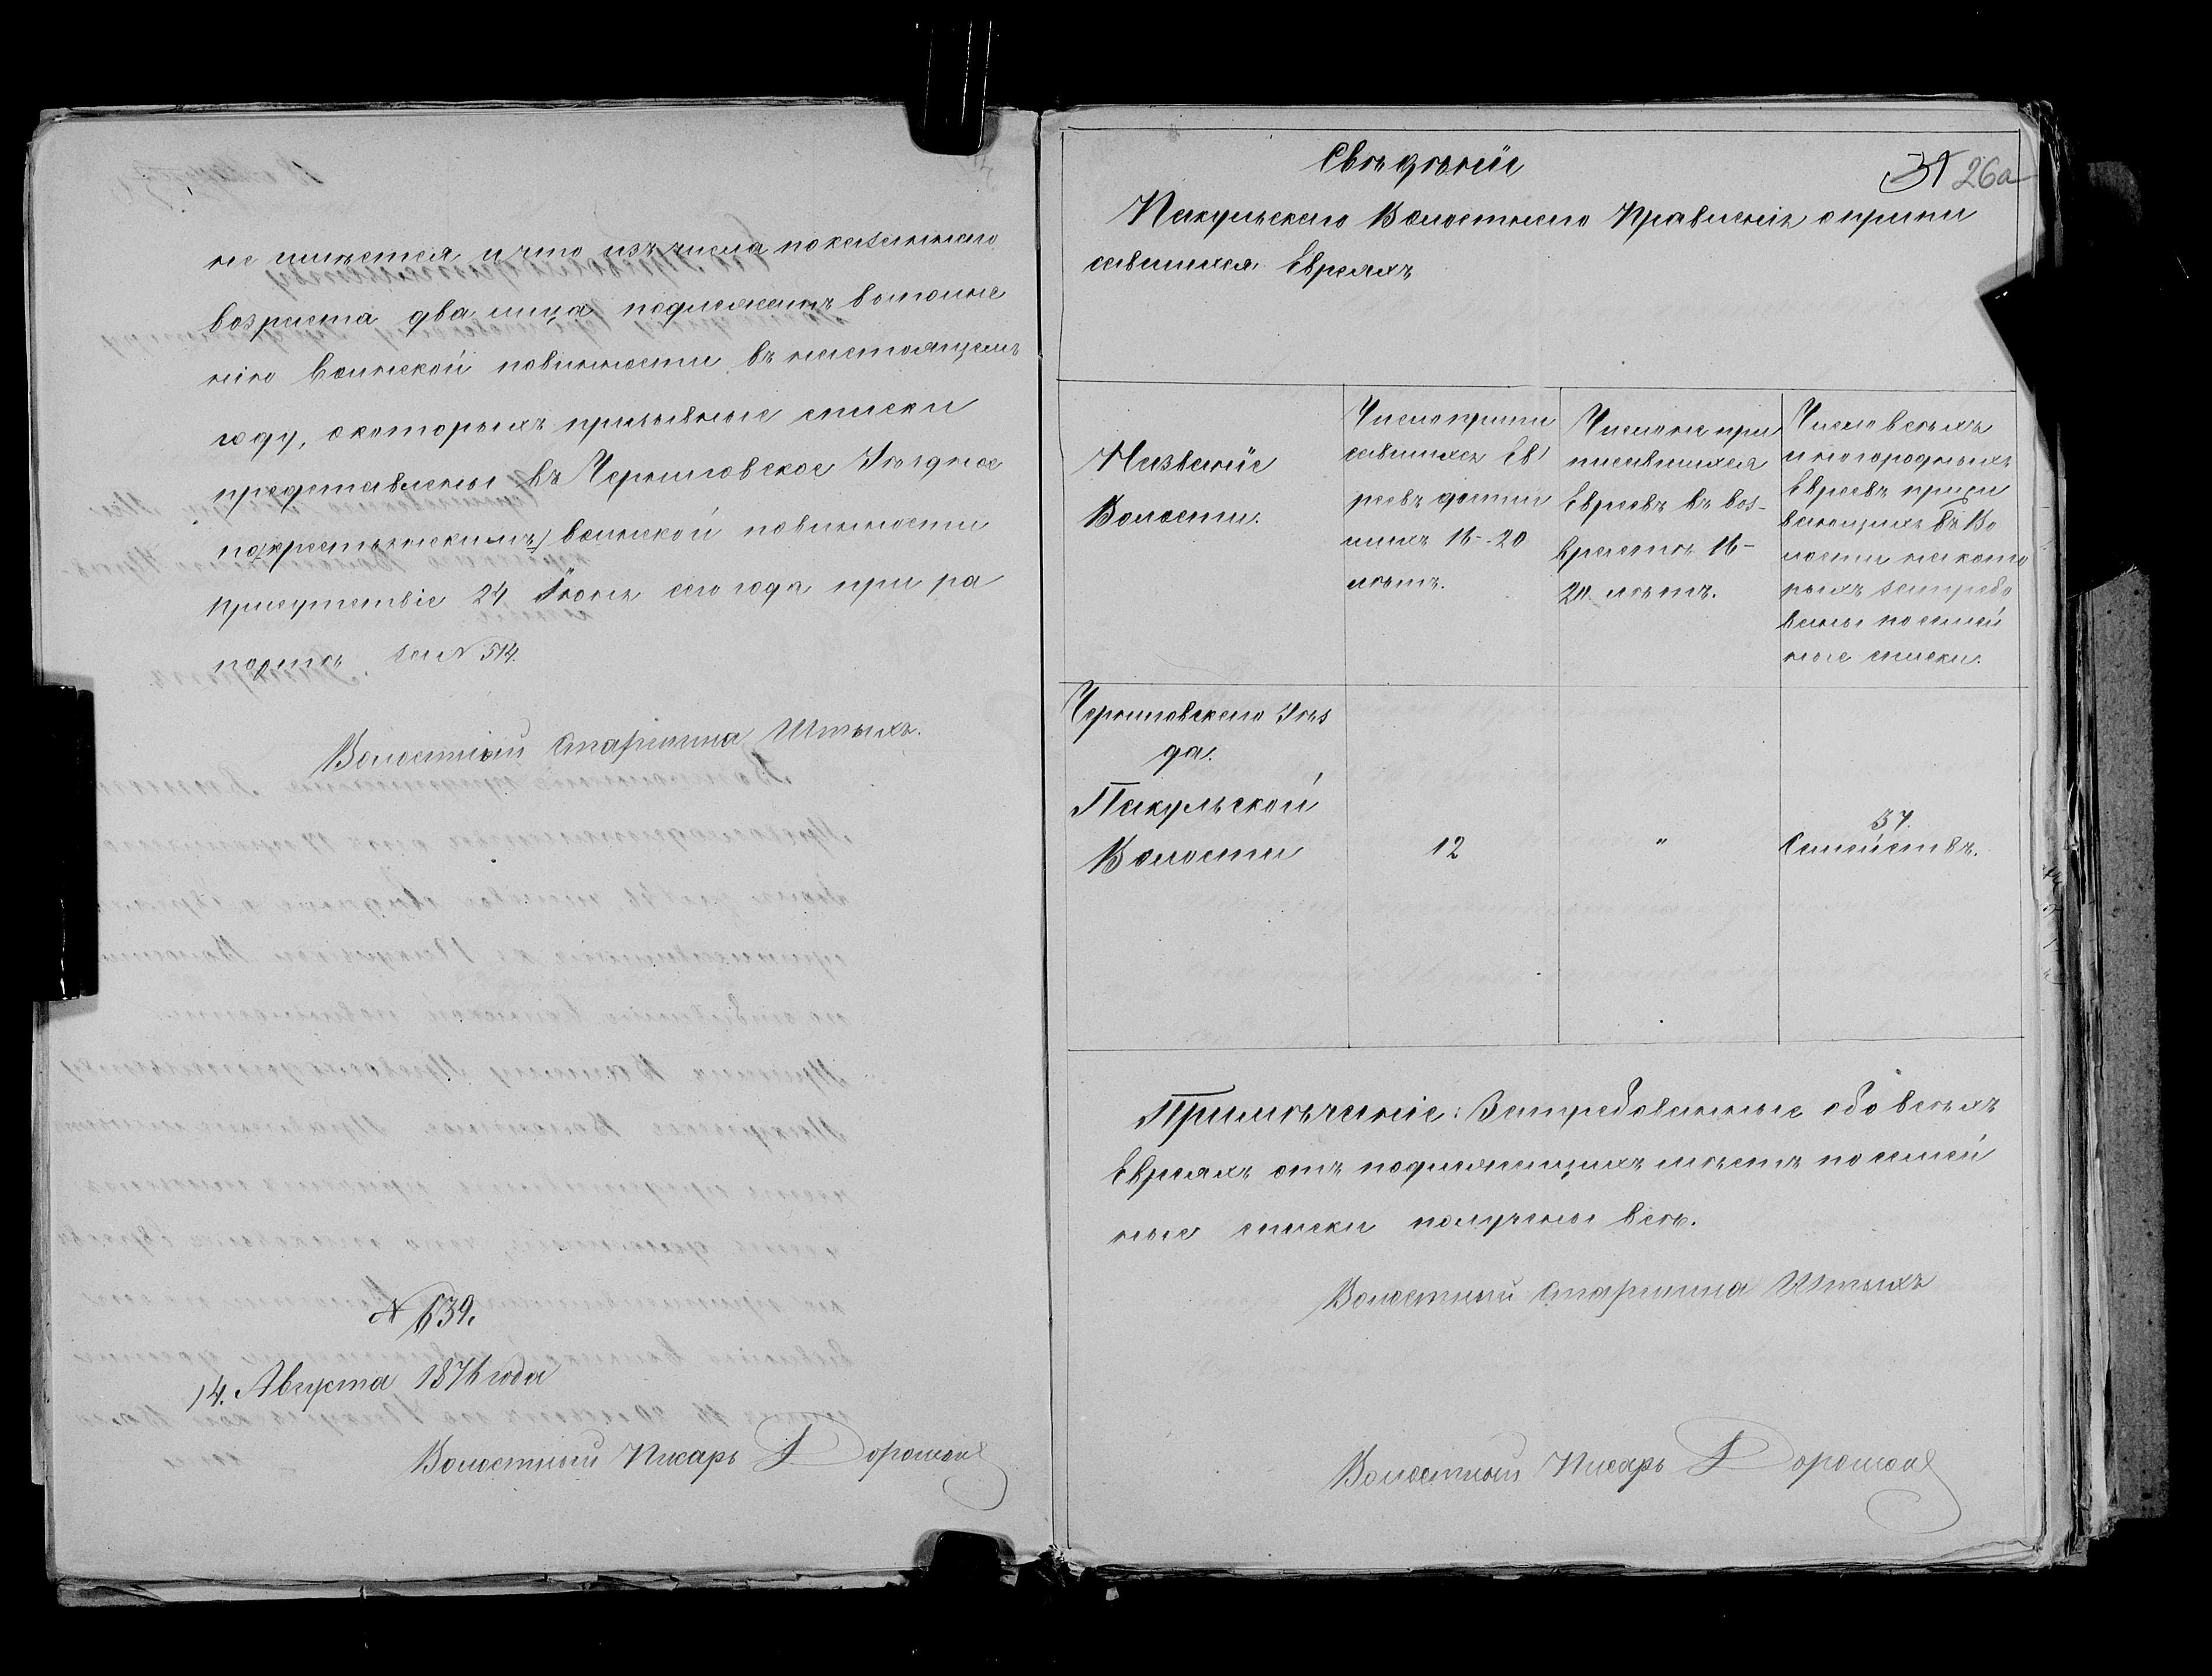 не имѣется, и что изъ числа показаннаго
возраста два лица подлежатъ къ отбыва
нію воинской повинности въ настоящемъ
году, о которыхъ призывные списки
представлены въ Черниговское Уѣздное
по крестьянскимъ воинской повинности
присутствіе 24 Іюня сего года при ра
портѣ за № 514.
Волостный Старшина Штыхъ.
№ 639.
14. Августа 1876 года
Волостный Писарь Дорошок
31 26а
Свѣдѣніе
Пакульскаго Волостнаго Правленія о припи
савшихся Евреяхъ
Названіе
Волости.
Число припи
савшихся Ев
реевъ достиг
шихъ 16-20
лѣтъ.
Число не при
писавшихся
Евреевъ въ воз-
врастѣ 16-
20 лѣтъ.
Число всѣхъ
иногородныхъ
Евреевъ прожи
вающихъ въ Во
лости на кото
рыхъ затребо
ваны посемей
ные списки.
Черниговскаго Уѣз
да.
Пакульской
Волости
12
"
37.
Семействъ.
Примѣчаніе: Затребованные обо всѣхъ
Евреяхъ отъ подлежащихъ мѣстъ посемей
ные списки получены всѣ.
Волостный Старшина Штыхъ
Волостный Писарь Дорошок